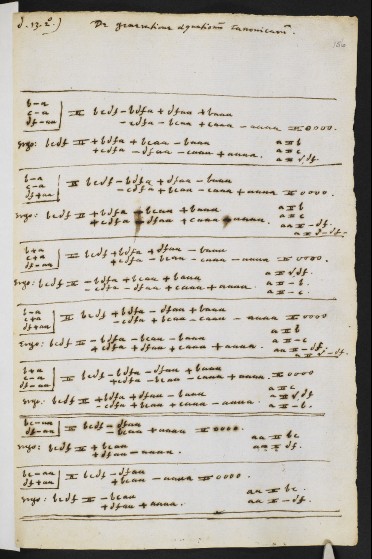 d.13.2°.) De generatione aequationum canonicarum.
156
b-a
c-a
df-aa = bcdf - bdfa + dfaa + baaa
- cdfa - bcaa + caaa - aaaa = 0000.
Ergo: bcdf = + bdfa + bcaa - baaa a = b
+ cdfa - dfaa - caaa + aaaa. a = c
a = √df.
b-a
c-a
df+aa = bcdf - bdfa + dfaa - baaa
- cdfa + bcaa - caaa + aaaa = 0000.
Ergo: bcdf = + bdfa - bcaa + baaa a = b
+ cdfa - dfaa + caaa - aaaa. a = c
aa = -df.
a = √-df.
b+a
c+a
df-aa = bcdf + bdfa + dfaa - baaa
+ cdfa - bcaa - caaa - aaaa = 0000.
Ergo: bcdf = - bdfa + bcaa + baaa a = √df.
- cdfa - dfaa + caaa + aaaa. a = -b.
a = -c.
b-a
c+a
df+aa = bcdf + bdfa - dfaa + baaa
- cdfa + bcaa - caaa - aaaa = 0000
Ergo: bcdf = - bdfa - bcaa - baaa a = b
+ cdfa + dfaa + caaa + aaaa. a = -c
aa = -df.
a = √-df.
b+a
c-a
df-aa = bcdf - bdfa - dfaa + baaa
+ cdfa - bcaa - caaa + aaaa = 0000
Ergo: bcdf = + bdfa + dfaa - baaa a = c
- cdfa + bcaa + caaa - aaaa. a = √df
a = -b.
bc-aa
df-aa = bcdf - dfaa
- bcaa + aaaa = 0000.
Ergo: bcdf = + bcaa aa = bc
+ dfaa - aaaa. aa = df.
bc-aa
df+aa = bcdf - dfaa
+ bcaa - aaaa = 0000.
Ergo: bcdf = - bcaa aa = bc.
+ dfaa + aaaa. aa = -df.